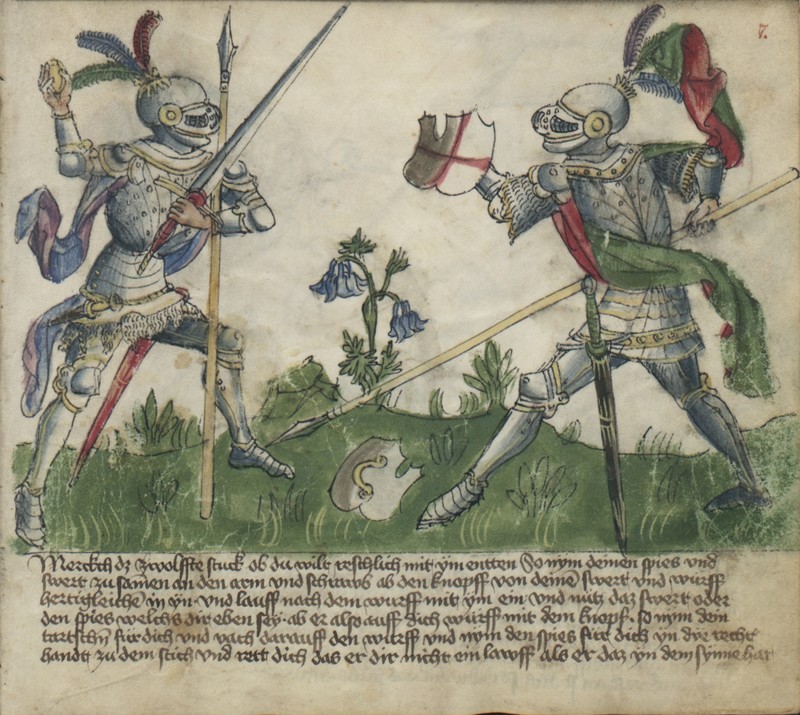 7.
Merckch dz zwolffte stuck ob du wilt reschlich mit ym entten So nym deinen spies vnd
swert zu samen an den arm vnd schrawb ab den knopff von deine swert vnd wurff
hertigleiche yn yn vnd lauff nach dem wurff mit ym ein vnd nutz daz swert oder
den spies welchs dir eben sey ab er also auff dich wurff mit dem knopf so nym dein
tartschn fur dich vnd vach darauff den wurff vnd nym den spies fur dich yn dye recht
handt zu dem stich vnd rett dich das er dir nicht ein lawff als er daz yn dem synne hat